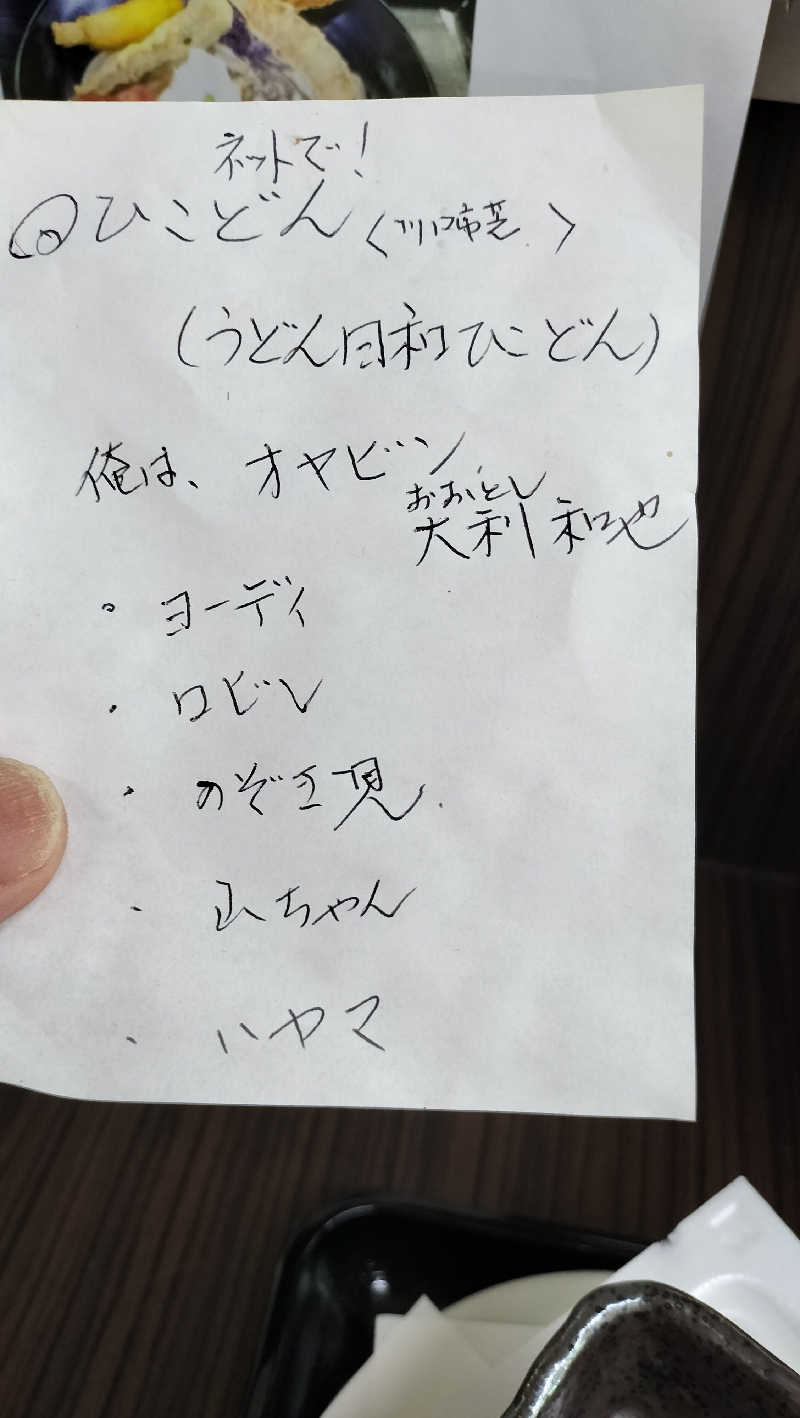 ネットで!
@ひこどん〈川口市芝〉
(うどん日和ひこどん)
俺は、オヤビン
おおとし
大利 和也
・ヨーディ
・ロビン
・のぞき見
・山ちゃん
・ハヤマ